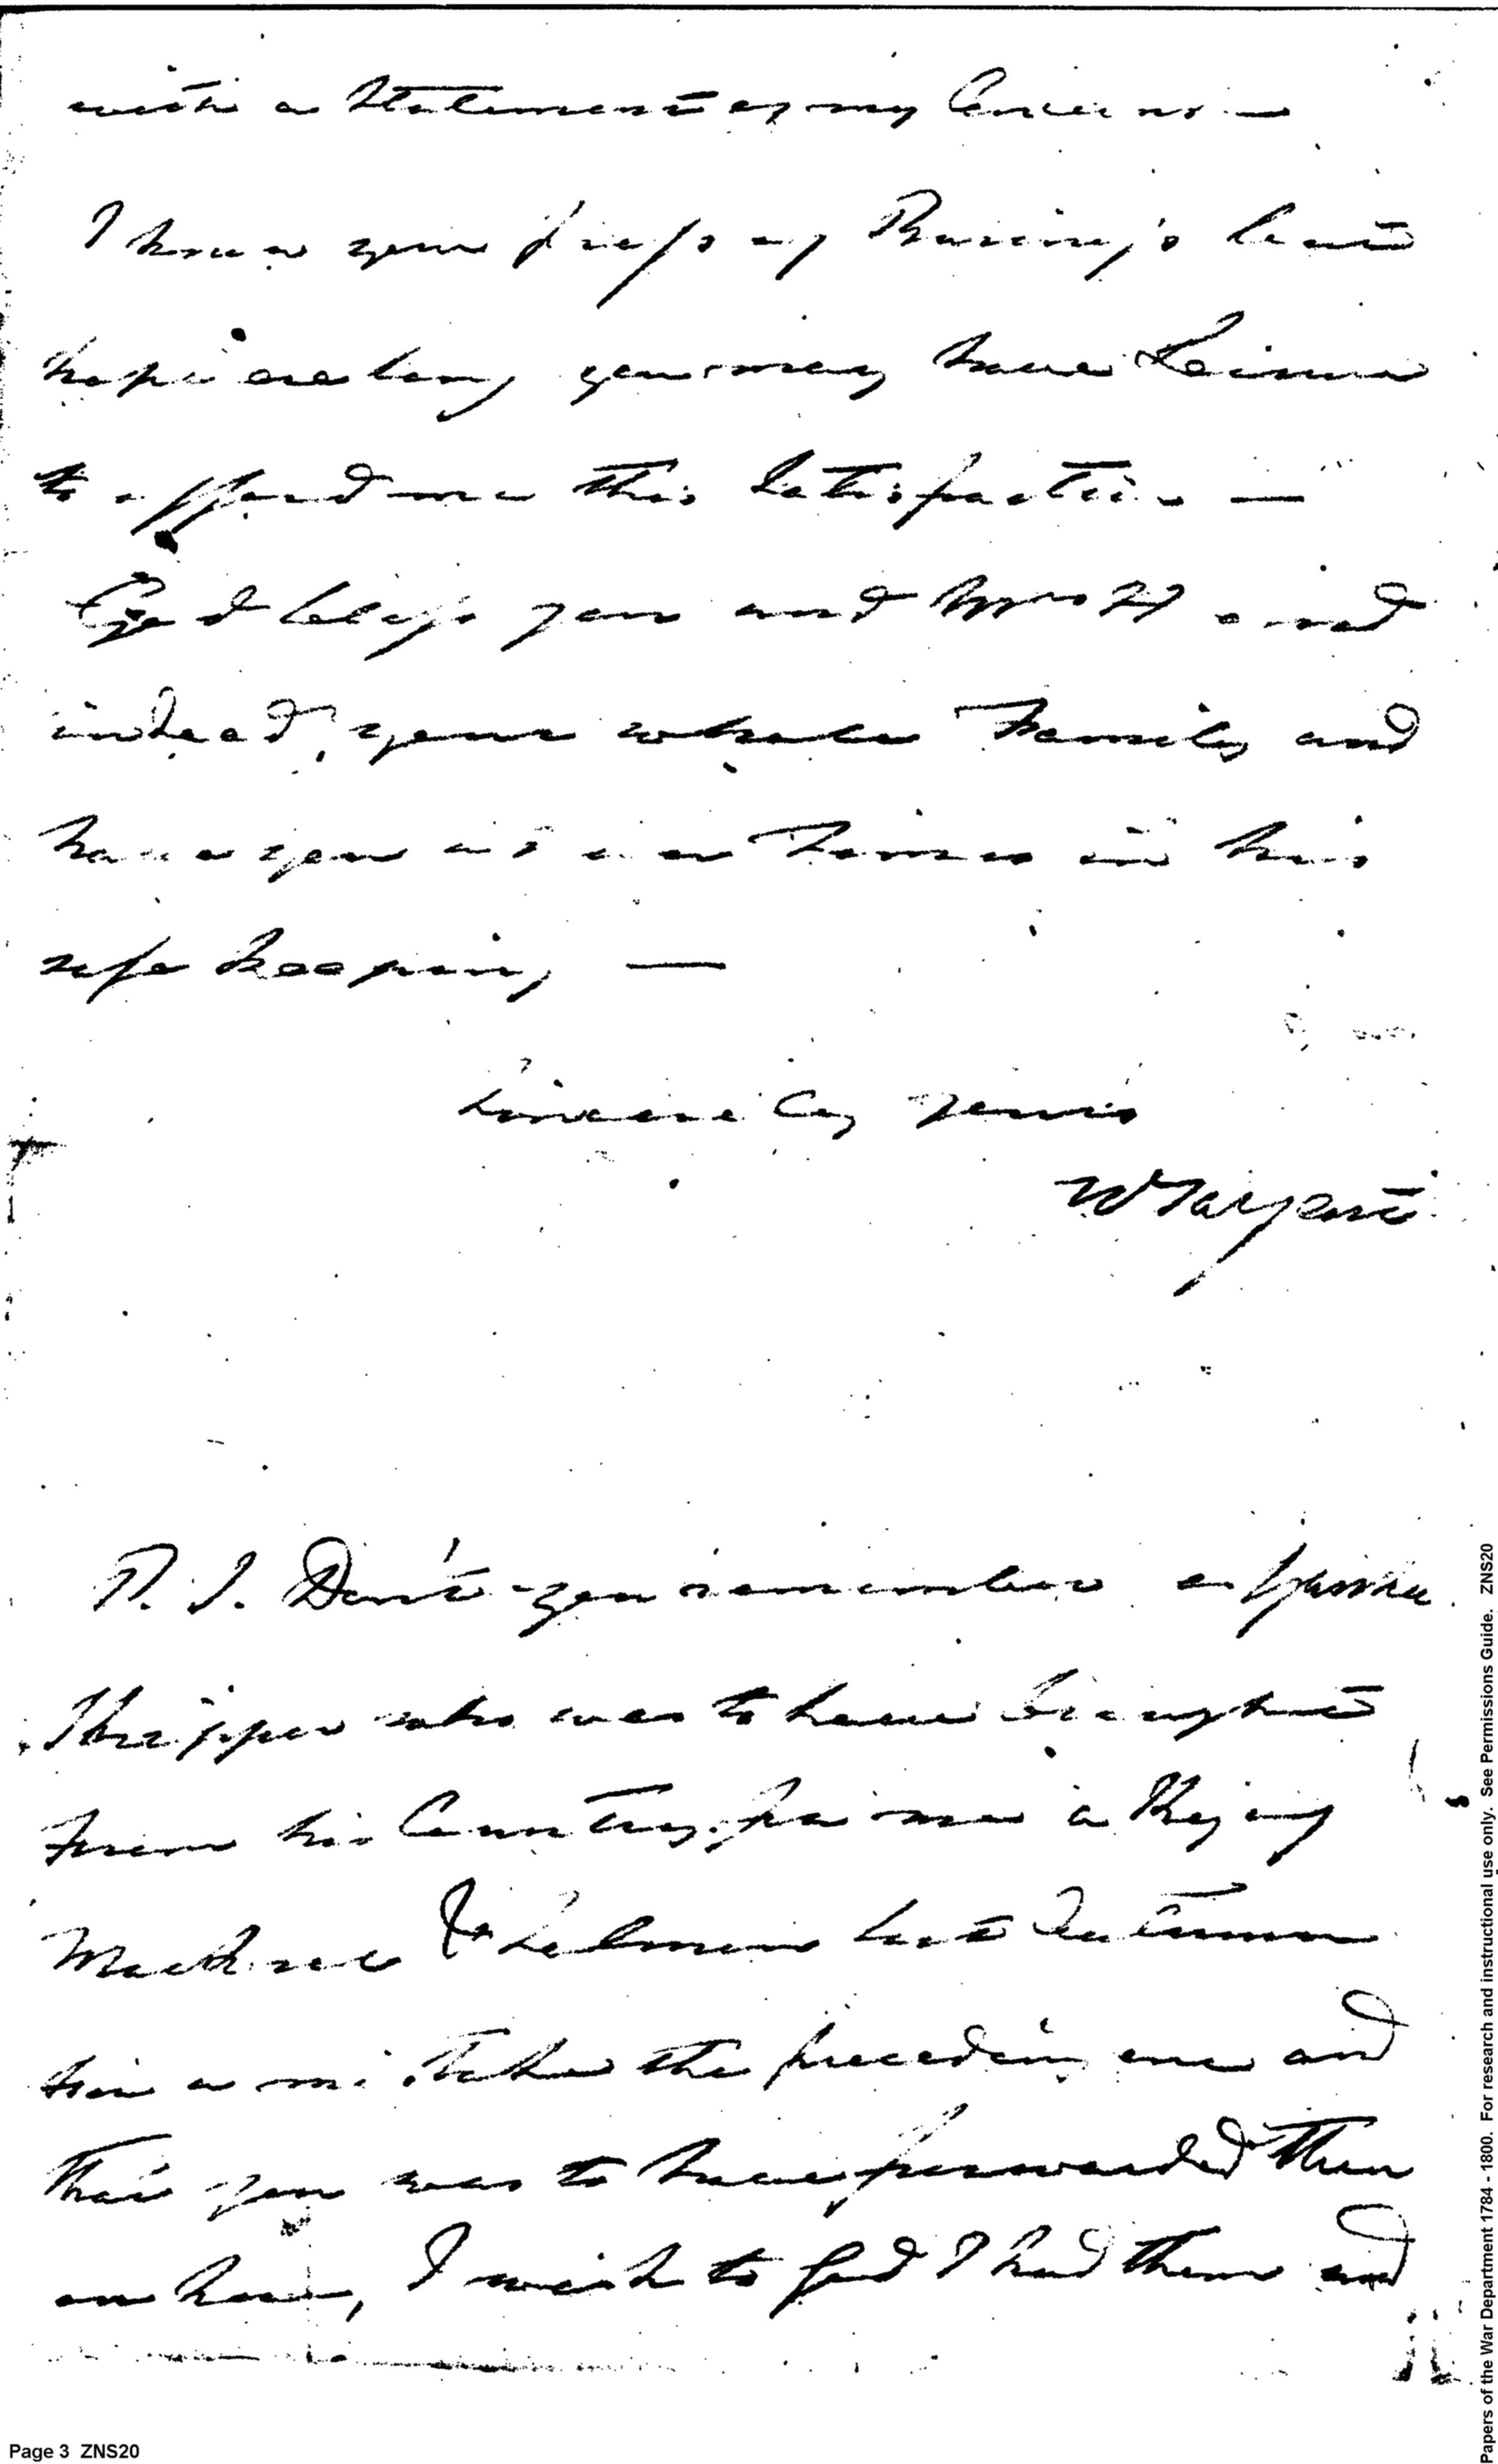 with a Statement of my Concerns —
I know your press of Business but
hope ere long you may have Leisure
to afford me this Satisfaction —
God bless you and Mrs H and
indeed, your whole Family and
have you at all Times in his
safe keeping —
Sincerely yours
W Sargent
P. S. Don't you remember a
Skipper who was to have brought
from his Country for me a
& Salmon last Autumn
the preceding one and
that you was to have forwarded them
on here, I wish to God I had them and
Page 3 ZNS20
Papers of the War Department 1784 - 1800. For research and instructional use only. See Permissions Guide. ZNS20